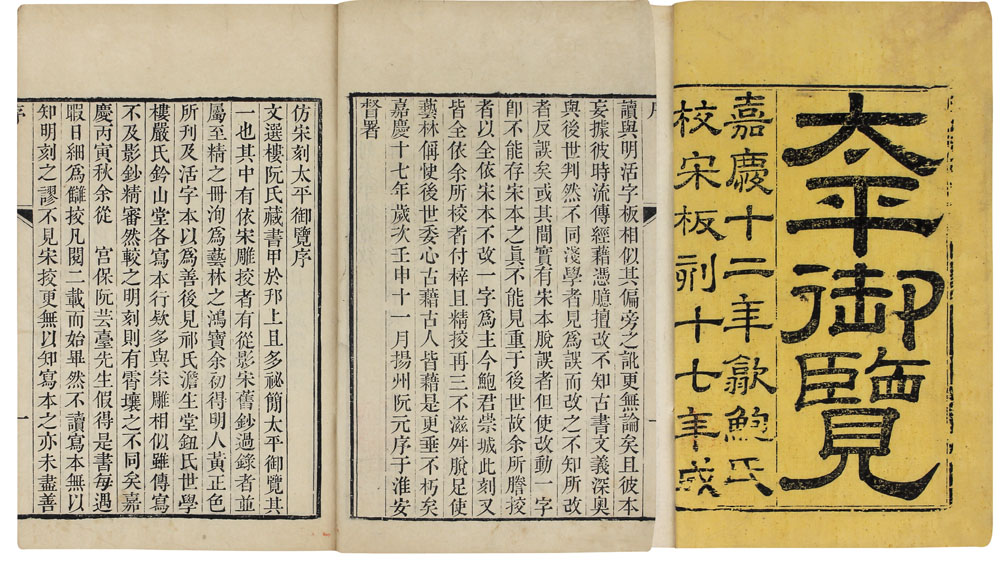 太平御覽
嘉慶十二年歙鮑氏
校宋板刻十七年成
讀與明活字板相似其偏旁之訛更無論矣且彼本
妄據彼時流傳經藉憑臆擅改不知古書文義深奧
與後世判然不同淺學者見為誤而改之不知所改
者反誤矣或其間實有宋本脫誤者但使改動一字
卽不能存宋本之真不能見重于後世故余所謄挍
者以全依宋本不改一字為主今鮑君崇城此刻又
皆全依余所挍者付梓且精挍再三不滋舛脫足使
藝林偁快後世委心古藉古人皆藉是更垂不朽矣
嘉慶十七年歲次壬申十一月揚州阮元序于淮安
督署
仿宋刻太平御覽序
文選樓阮氏藏書甲於邗上且多祕簡太平御覽其
一也其中有依宋雕挍者有從影宋舊鈔過錄者並
屬至精之冊洵為藝林之鴻寶余初得明人黃正色
所刊及活字本以為善後見祁氏澹生堂鈕氏世學
樓嚴氏鈐山堂各寫本行欵多與宋雕相似雖傳寫
不及影鈔精審然較之明刻則有霄壤之不同矣嘉
慶丙寅秋余從 宮保阮芸臺先生假得是書每遇
暇日細為讎挍凡閱二載而始畢然不讀寫本無以
知明刻之謬不見宋挍更無以知寫本之亦未盡善
序
一